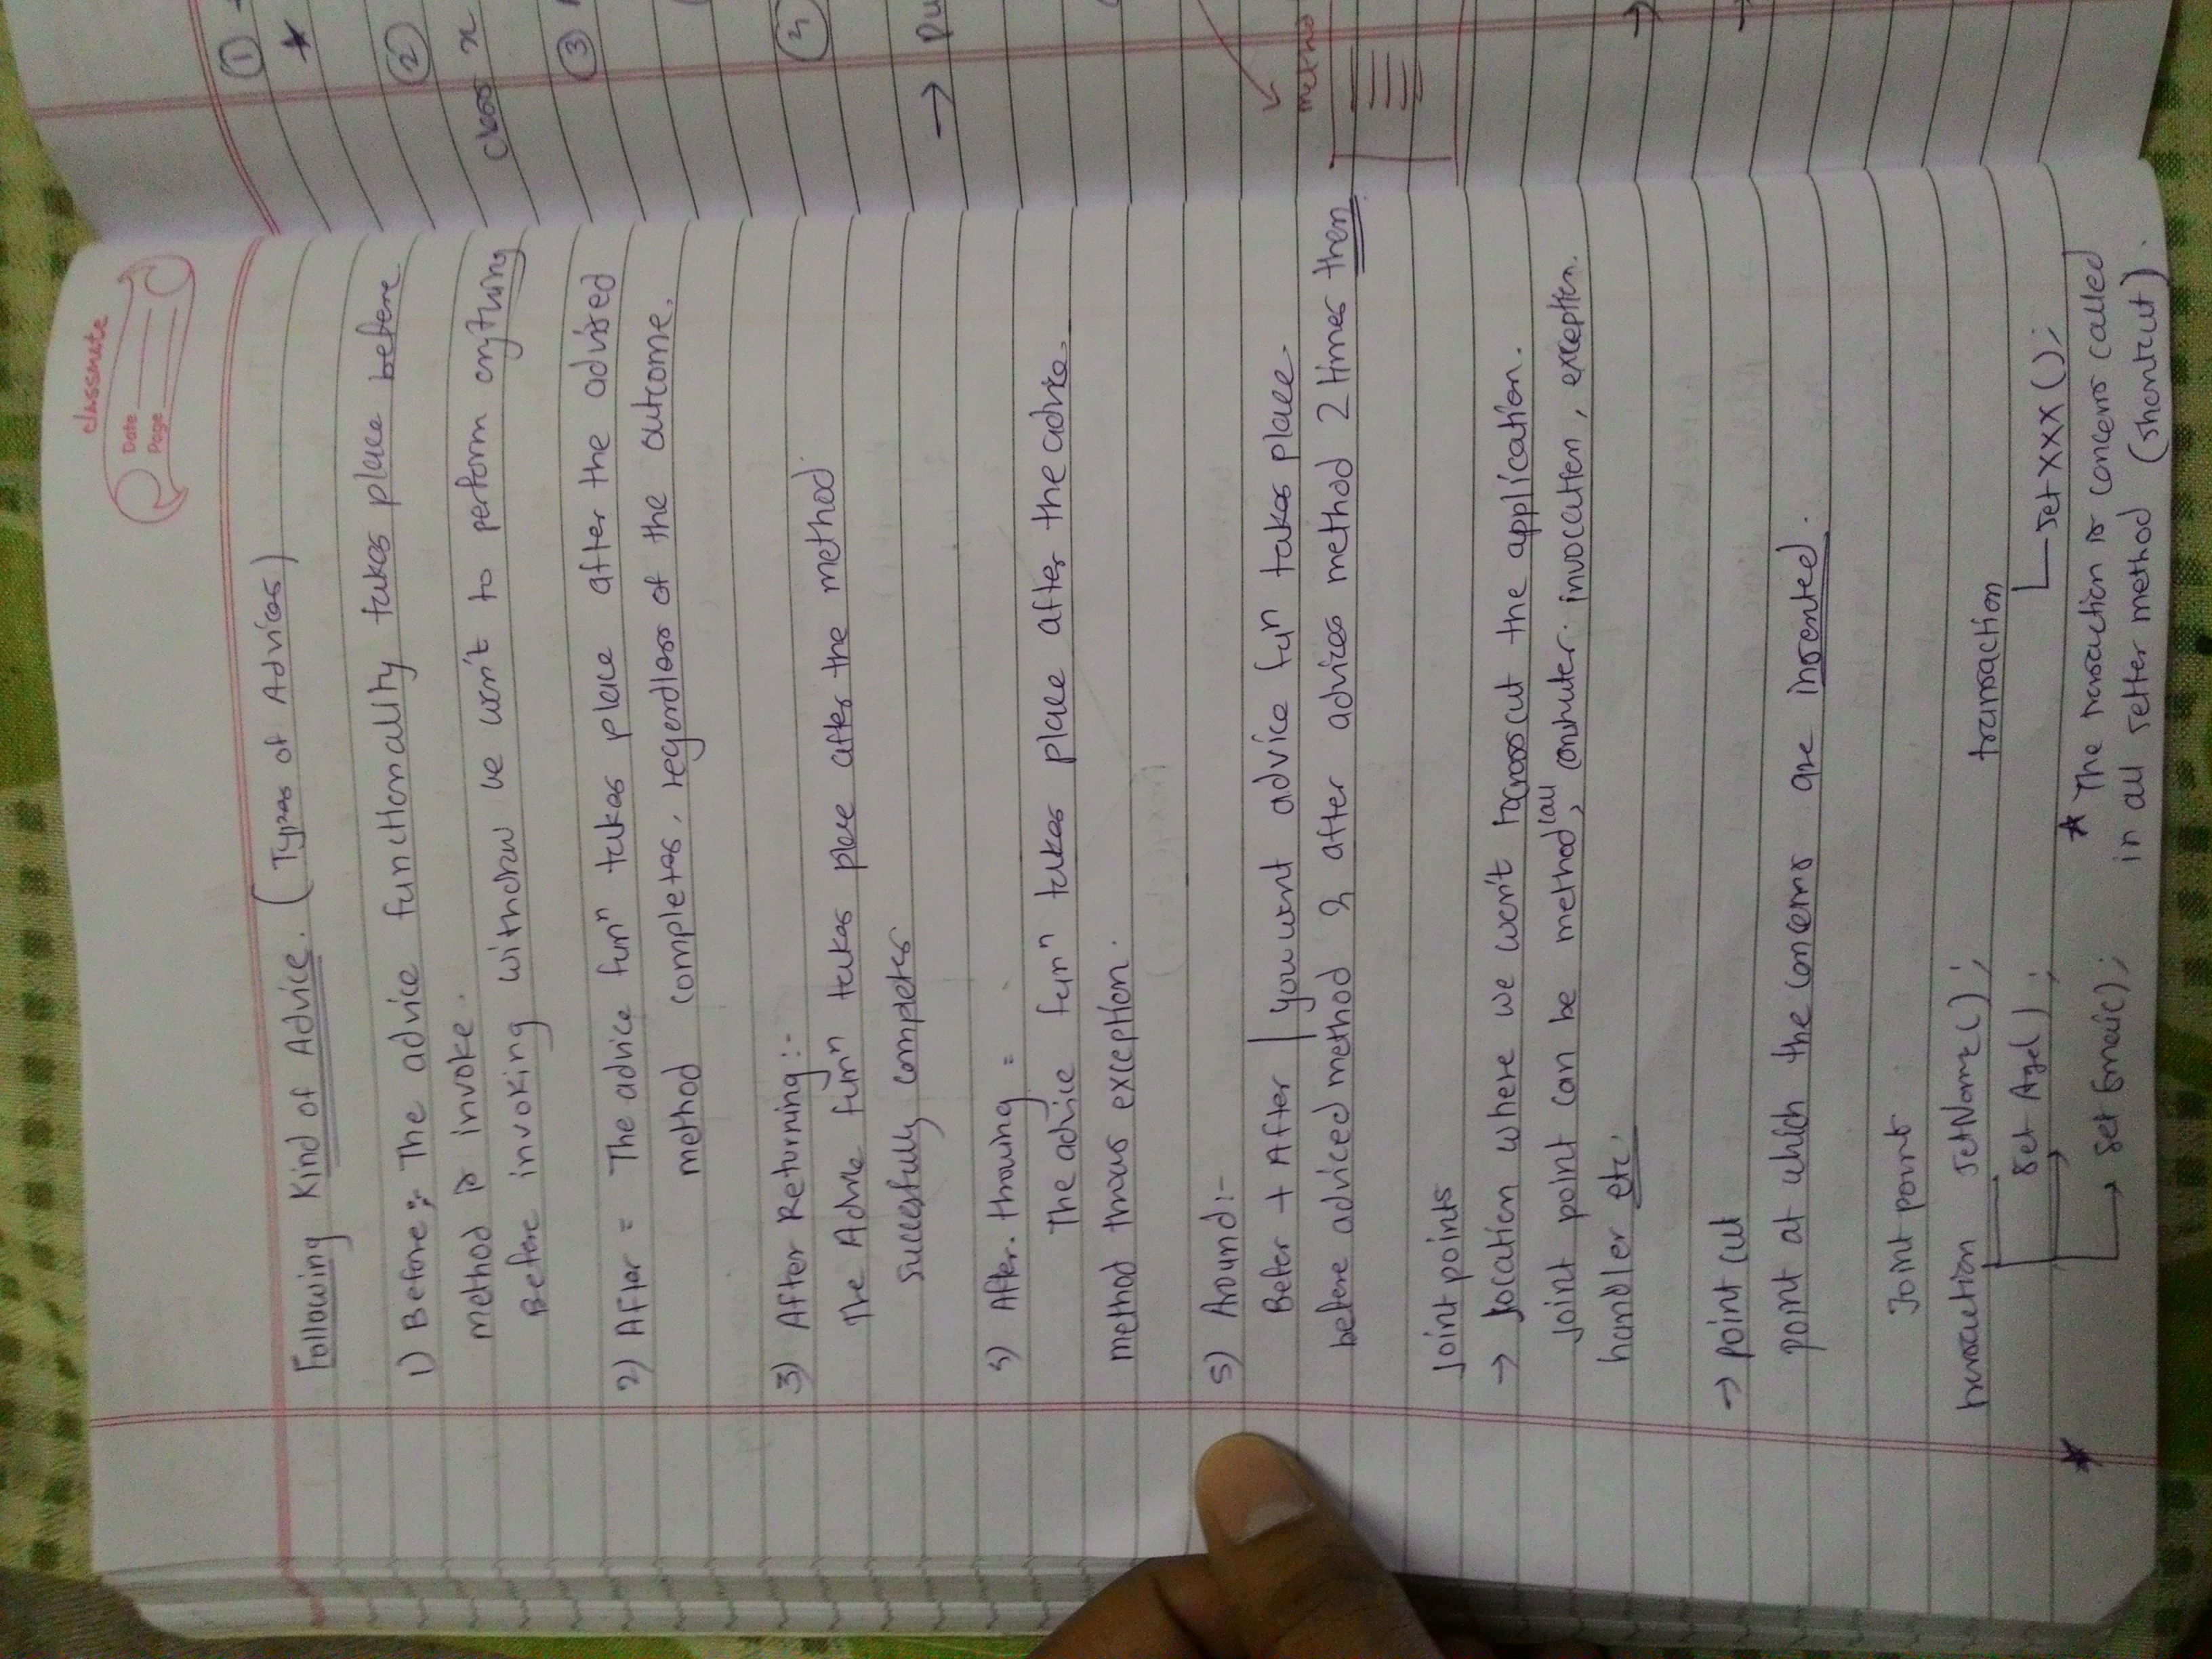 classmate
Date
Page
Following Kind of Advice. (Types of Advices)
1) Before :- The advice functionality takes place before
method is invoke.
Before invoking withdraw we wan't to perform anything
2) After = The advice funⁿ takes place after the advised
method completes, regardless of the outcome.
3) After Returning :-
The Advice funⁿ takes place after the method
succesfully completes
4) After. throwing =
The advice funⁿ takes place after the advice
method throws exception.
5) Around :-
Befor + After / you want advice fuⁿ takes place
before adviced method & after advices method 2 times then
Joint points
→ location where we wan't to cross cut the application.
Joint point can be method call, invocation, exception
handler etc.
→ point cut
point at which the concerns are inserted.
Joint point
transaction setName();
set Age();
set Email();
transaction
set XXX();
★ The transaction is concerns called
in all setter method (shortcut).
①
★
②
class x
③
④
→ pu
metho